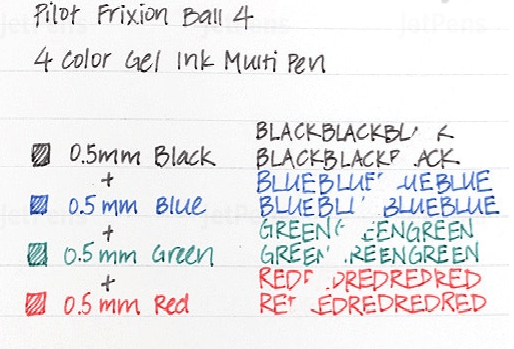 Pilot Frixion Ball 4
4 Color Gel Ink Multi Pen
0.5mm Black
+
0.5mm Blue
+
0.5mm Green
+
0.5mm Red
BLACKBLACKBL K
BLACKBLACK ACK
BLUEBLUE UEBLUE
BLUEBL BLUEBLUE
GREEN EENGREEN
GREEN REENGREEN
RED DREDREDRED
RE EDREDREDRED
JetPens